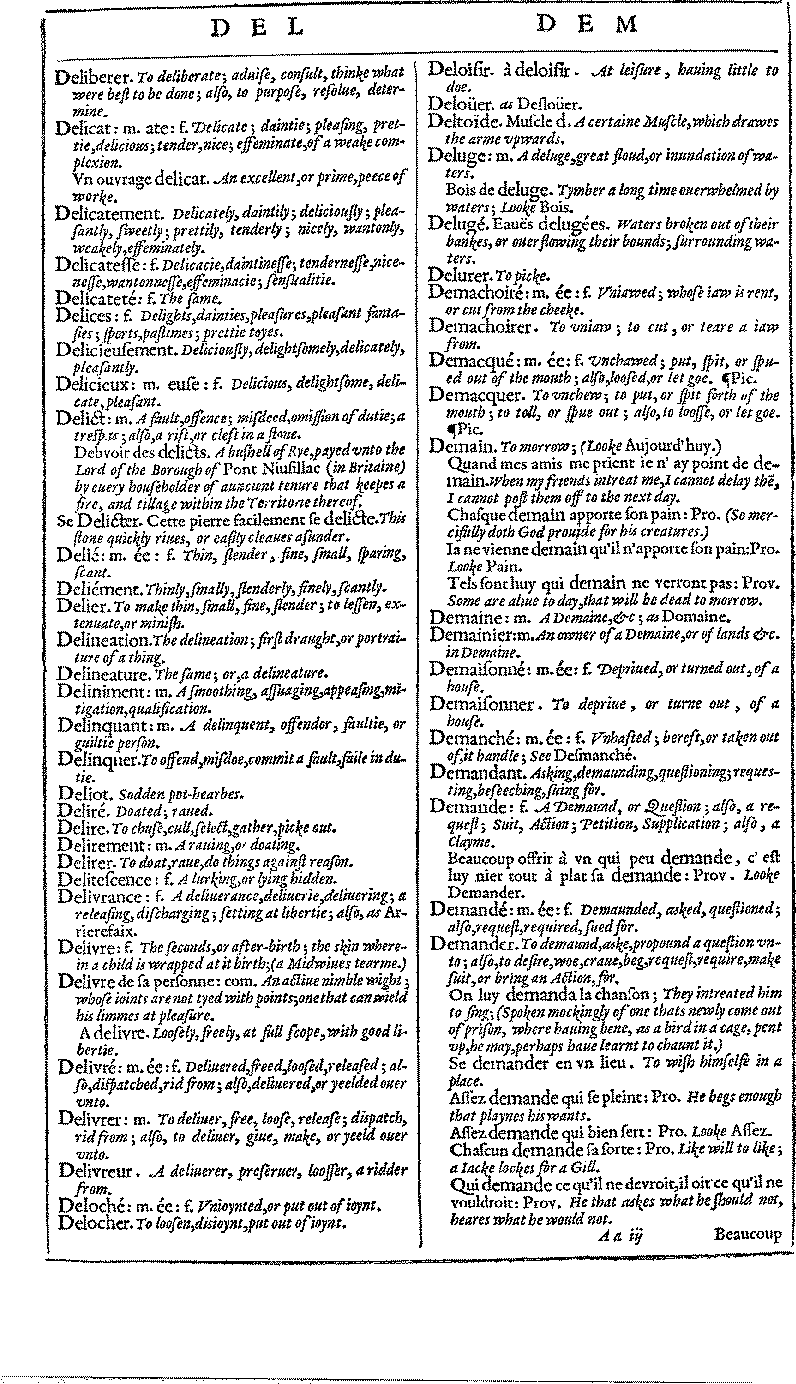 D E L
Deliberer. To deliberate; aduiſe, conſult, thinke what
were beſt to be done; alſo, to purpoſe, reſolue, deter-
mine.
Delicat: m. ate: f. Delicate; daintie; pleaſing, pret-
tie, delicious; tender, nice; effeminate, of a weake com-
plexion.
Vn ouvrage delicat. An excellent, or prime, peece of
worke.
Delicatement. Delicately, daintily; deliciouſly; plea-
ſantly, ſweetly; prettily, tenderly; nicely, wantonly,
weakely, effeminately.
Delicateſſe: f. Delicacie, daintineſſe; tenderneſſe, nice-
neſſe, wantonneſſe, effeminacie; ſenſualitie.
Delicateté: f. The ſame.
Delices: f. Delights, dainties, pleaſures, pleaſant fanta-
ſies; ſports, paſtimes; prettie toyes.
Delicieuſement. Deliciouſly, delightſomely, delicately,
pleaſantly.
Delicieux: m. euſe: f. Delicious, delightſome, deli-
cate, pleaſant.
Delict: m. A fault, offence; miſdeed, omiſſion of dutie; a
treſpas; alſo, a rift, or cleft in a ſtone.
Debvoir des delicts. A buſhell of Rye, payed vnto the
Lord of the Borough of Pont Niuſillac (in Britaine)
by euery houſeholder of auncient tenure that keepes a
fire, and tillage within the Territorie thereof.
Se Delicter. Cette pierre facilement ſe delicte. This
ſtone quickly riues, or eaſily cleaues aſunder.
Delié: m. ée: f. Thin, ſlender, fine, ſmall, ſparing,
ſcant.
Deliément. Thinly, ſmally, ſlenderly, finely, ſcantly.
Delier. To make thin, ſmall, fine, ſlender; to leſſen, ex-
tenuate, or miniſh.
Delineation. The delineation; firſt draught, or portrai-
ture of a thing.
Delineature. The ſame; or, a delineature.
Deliniment: m. A ſmoothing, aſſuaging, appeaſing, mi-
tigation, qualification.
Delinquant: m. A delinquent, offendor, faultie, or
guiltie perſon.
Delinquer. To offend, miſdoe, commit a fault, faile in du-
tie.
Deliot. Sodden pot-hearbes.
Deliré. Doated; raued.
Delire. To chuſe, cull, ſelect, gather, picke out.
Delirement: m. A rauing, or doating.
Delirer. To doat, raue, do things againſt reaſon.
Deliteſcence: f. A lurking, or lying hidden.
Delivrance: f. A deliuerance, deliuerie, deliuering; a
releaſing, diſcharging; ſetting at libertie; alſo, as Ar-
rierefaix.
Delivre: f. The ſeconds, or after-birth; the skin where-
in a child is wrapped at it birth; (a Midwiues tearme.)
Delivre de ſa perſonne: com. An actiue nimble wight;
whoſe ioints are not tyed with points; one that can wield
his limmes at pleaſure.
A delivre. Looſely, freely, at full ſcope, with good li-
bertie.
Delivré: m. ée: f. Deliuered, freed, looſed, releaſed; al-
ſo, diſpatched, rid from; alſo, deliuered, or yeelded ouer
vnto.
Delivrer: m. To deliuer, free, looſe, releaſe; diſpatch,
rid from; alſo, to deliuer, giue, make, or yeeld ouer
vnto.
Delivreur. A deliuerer, preſeruer, looſſer, a ridder
from.
Deloché: m. ée: f. Vnioynted, or put out of ioynt.
Delocher. To looſen, diſioynt, put out of ioynt.
D E M
Deloiſir. à deloiſir. At leiſure, hauing little to
doe.
Deloüer. as Desloüer.
Deltoïde. Muſcle d. A certaine Muſcle, which drawes
the arme vpwards.
Deluge: m. A deluge, great floud, or inundation of wa-
ters.
Bois de deluge. Tymber a long time ouerwhelmed by
waters; Looke Bois.
Delugé. Eauës delugées. Waters broken out of their
bankes, or ouerflowing their bounds; ſurrounding wa-
ters.
Delurer. To picke.
Demachoiré: m. ée: f. Vniawed; whoſe iaw is rent,
or cut from the cheeke.
Demachoirer. To vniaw; to cut, or teare a iaw
from.
Demacqué: m. ée: f. Vnchawed; put, ſpit, or ſpu-
ed out of the mouth; alſo, looſed, or let goe. ¶Pic.
Demacquer. To vnchew; to put, or ſpit forth of the
mouth; to toll, or ſpue out; alſo, to looſſe, or let goe.
¶Pic.
Demain. To morrow; (Looke Aujourd'huy.)
Quand mes amis me prient ie n' ay point de de-
main. When my friends intreat me, I cannot delay thē,
I cannot poſt them off to the next day.
Chaſque demain apporte ſon pain: Pro. (So mer-
cifully doth God prouide for his creatures.)
Ia ne vienne demain qu'il n'apporte ſon pain: Pro.
Looke Pain.
Tels ſont huy qui demain ne verront pas: Prov.
Some are aliue to day, that will be dead to morrow.
Demaine: m. A Demaine, &c; as Domaine.
Demainier: m. An owner of a Demaine, or of lands &c.
in Demaine.
Demaiſonné: m. ée: f. Depriued, or turned out, of a
houſe.
Demaiſonner. To depriue, or turne out, of a
houſe.
Demanché: m. ée: f. Vnhafted; bereft, or taken out
of, it handle; See Deſmanché.
Demandant. Asking, demaunding, queſtioning; reques-
ting, beſeeching, ſuing for.
Demande: f. A Demaund, or Queſtion; alſo, a re-
queſt; Suit, Action; Petition, Supplication; alſo, a
clayme.
Beaucoup offrir à vn qui peu demande, c' eſt
luy nier tout à plat ſa demande: Prov. Looke
Demander.
Demandé: m. ée: f. Demaunded, asked, queſtioned;
alſo, requeſt, required, ſued for.
Demander. To demaund, aske, propound a queſtion vn-
to; alſo, to deſire, woe, craue, beg, requeſt, require, make
ſuit, or bring an Action, for.
On luy demanda la chanſon; They intreated him
to ſing; (Spoken mockingly of one thats newly come out
of priſon, where hauing bene, as a bird in a cage, pent
vp, he may, perhaps haue learnt to chaunt it.)
Se demander en vn lieu. To wiſh himſelfe in a
place.
Aſſez demande qui ſe pleint: Pro. He begs enough
that playnes his wants.
Aſſez demande qui bien ſert: Pro. Looke Aſſez.
Chaſcun demande ſa ſorte: Pro. Like will to like;
a Iacke lookes for a Gill.
Qui demande ce qu'il ne devroit, il oit ce qu'il ne
vouldroit: Prov. He that askes what he ſhould not,
heares what he would not.
A a iij Beaucoup